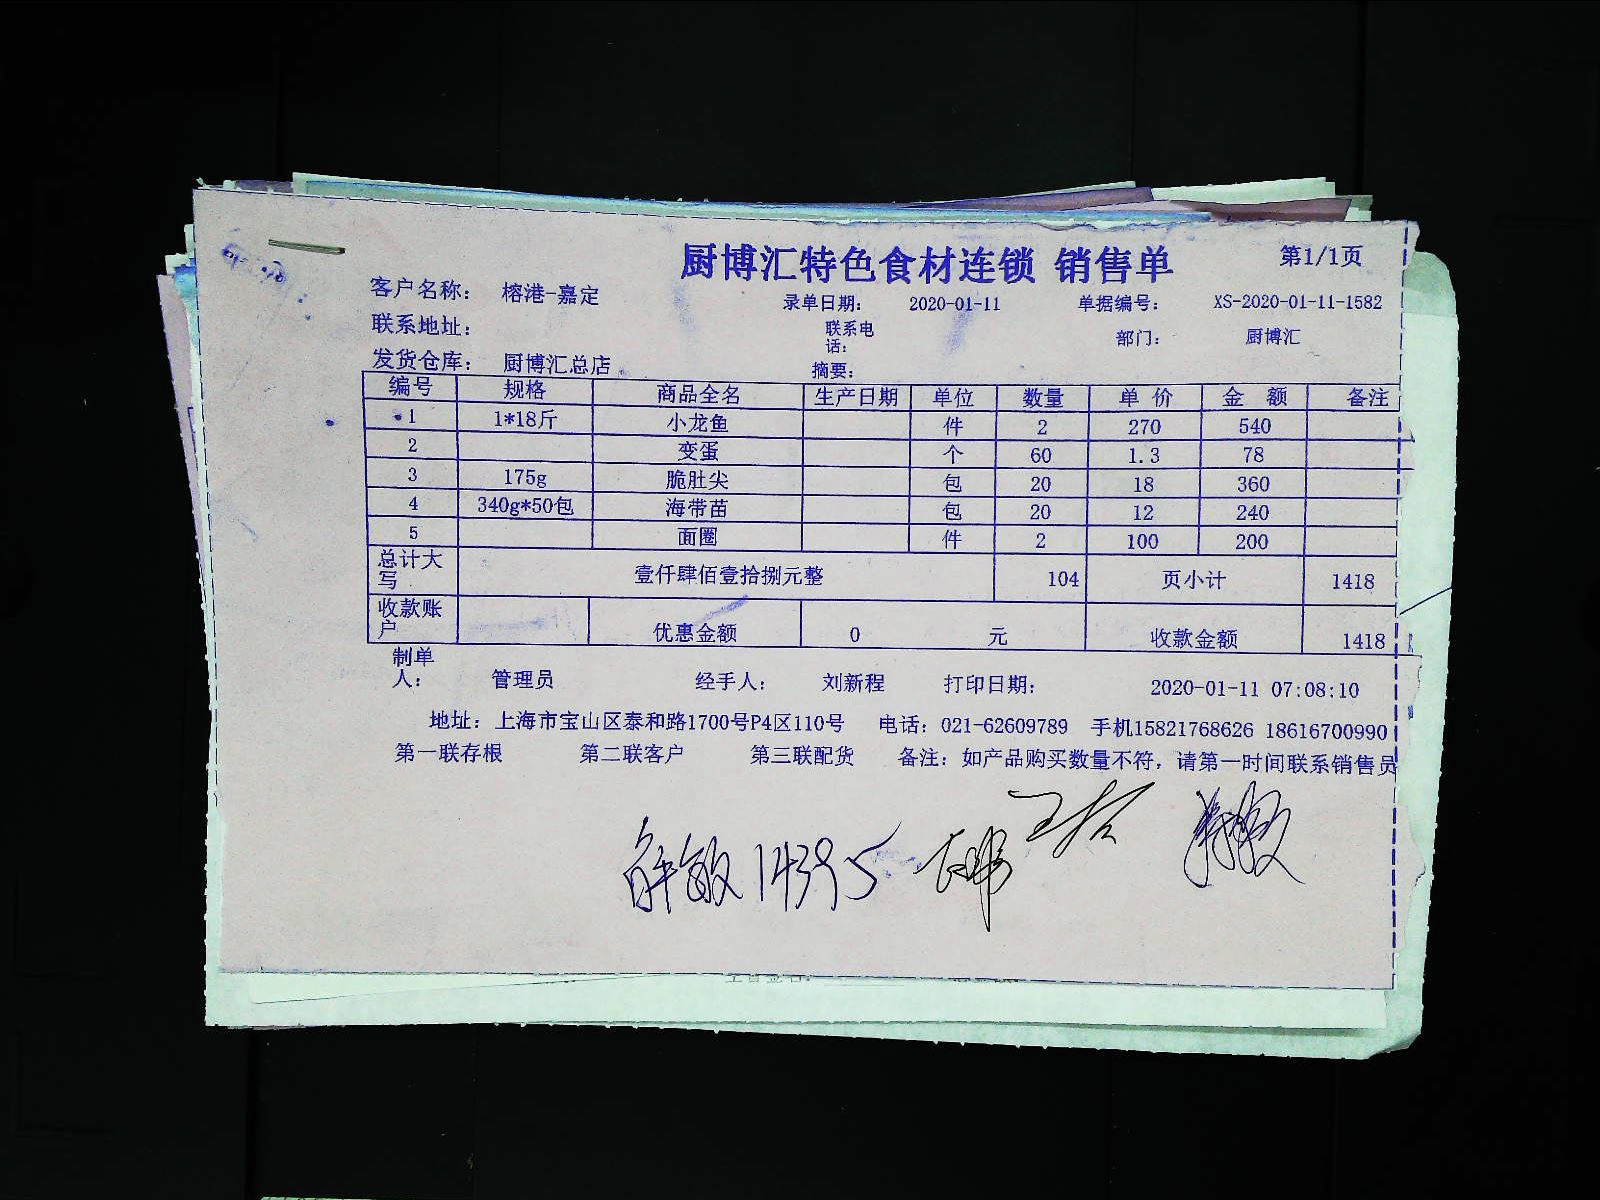 厨博汇特色食材连锁 销售单 第1/1页
客户名称： 榕港-嘉定 录单日期： 2020-01-11 单据编号： XS-2020-01-11-1582
联系地址： 联系电话： 部门： 厨博汇
发货仓库： 厨博汇总店 摘要：
编号 规格 商品全名 生产日期 单位 数量 单 价 金 额 备注
1 1*18斤 小龙鱼 件 2 270 540
2 变蛋 个 60 1.3 78
3 175g 脆肚尖 包 20 18 360
4 340g*50包 海带苗 包 20 12 240
5 面圈 件 2 100 200
总计大写 壹仟肆佰壹拾捌元整 104 页小计 1418
收款账户 优惠金额 0 元 收款金额 1418
制单人： 管理员 经手人： 刘新程 打印日期： 2020-01-11 07:08:10
地址：上海市宝山区泰和路1700号P4区110号 电话：021-62609789 手机15821768626 18616700990
第一联存根 第二联客户 第三联配货 备注：如产品购买数量不符，请第一时间联系销售员
14395